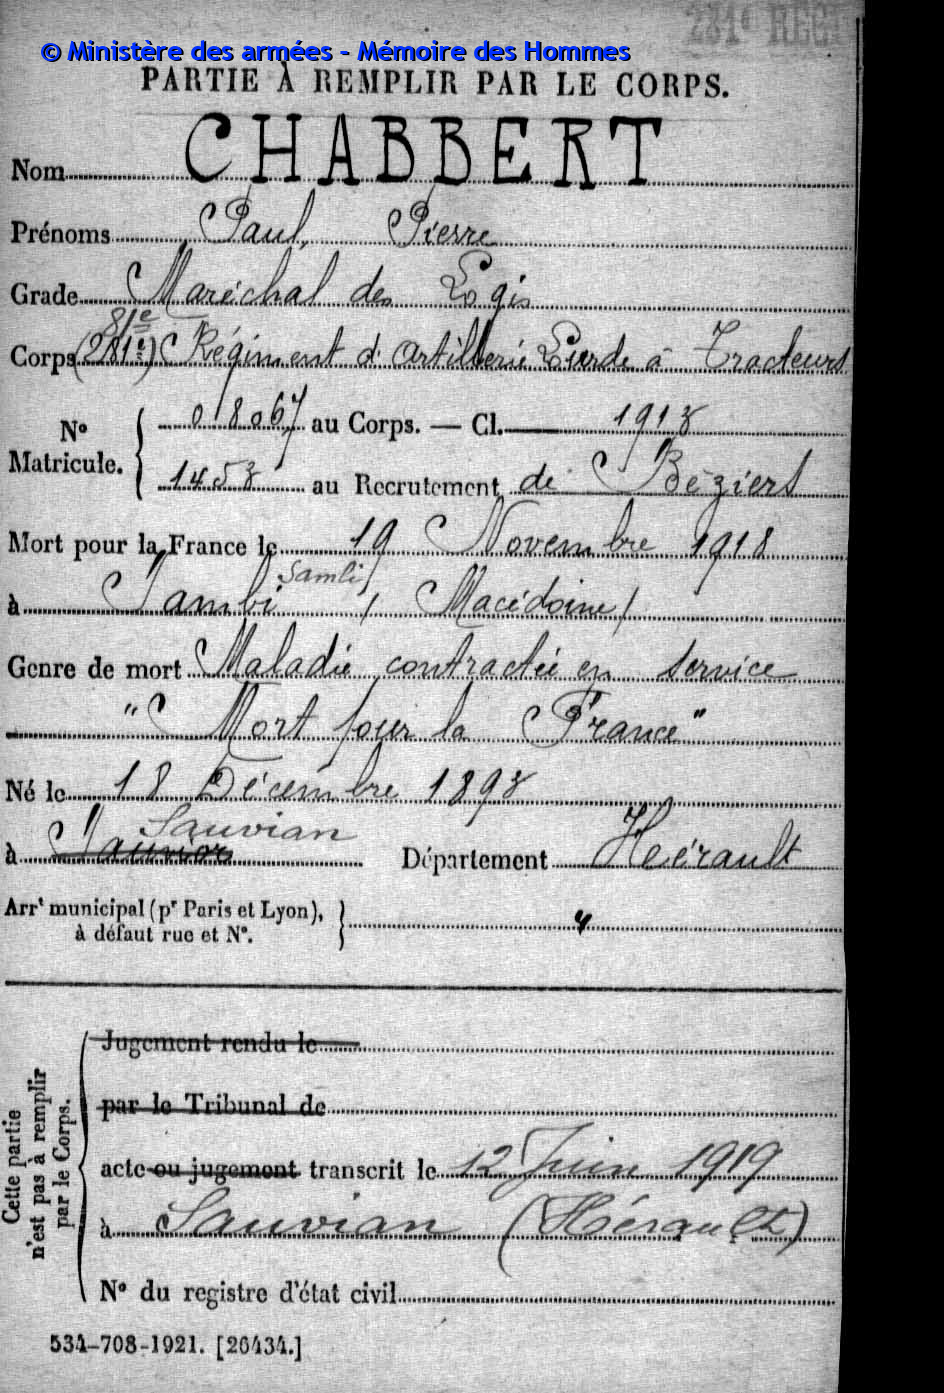 281e REGI
© Ministère des armées - Mémoire des Hommes
PARTIE À REMPLIR PAR LE CORPS.
Nom CHABBERT
Prénoms Paul, Pierre
Grade Maréchal des Logis
81e
Corps (281e) Régiment d'artillerie Lourde à Tracteurs
No Matricule. 08067 au Corps. — Cl. 1913
1453 au Recrutement de Béziers
Mort pour la France le 19 Novembre 1918
Samli
à Sambi (Macédoine)
Genre de mort Maladie contractée en service
"Mort pour la France"
Né le 18 Décembre 1893
Sauvian
à Sauvior Département Heérault
Arrt municipal (pr Paris et Lyon),
à défaut rue et No. "
Cette partie
n'est pas à remplir
par le Corps.
Jugement rendu le
par le Tribunal de
acte ou jugement transcrit le 12 Juin 1919
à Sauvian (Hérault)
No du registre d'état civil
534-708-1921. [26434.]